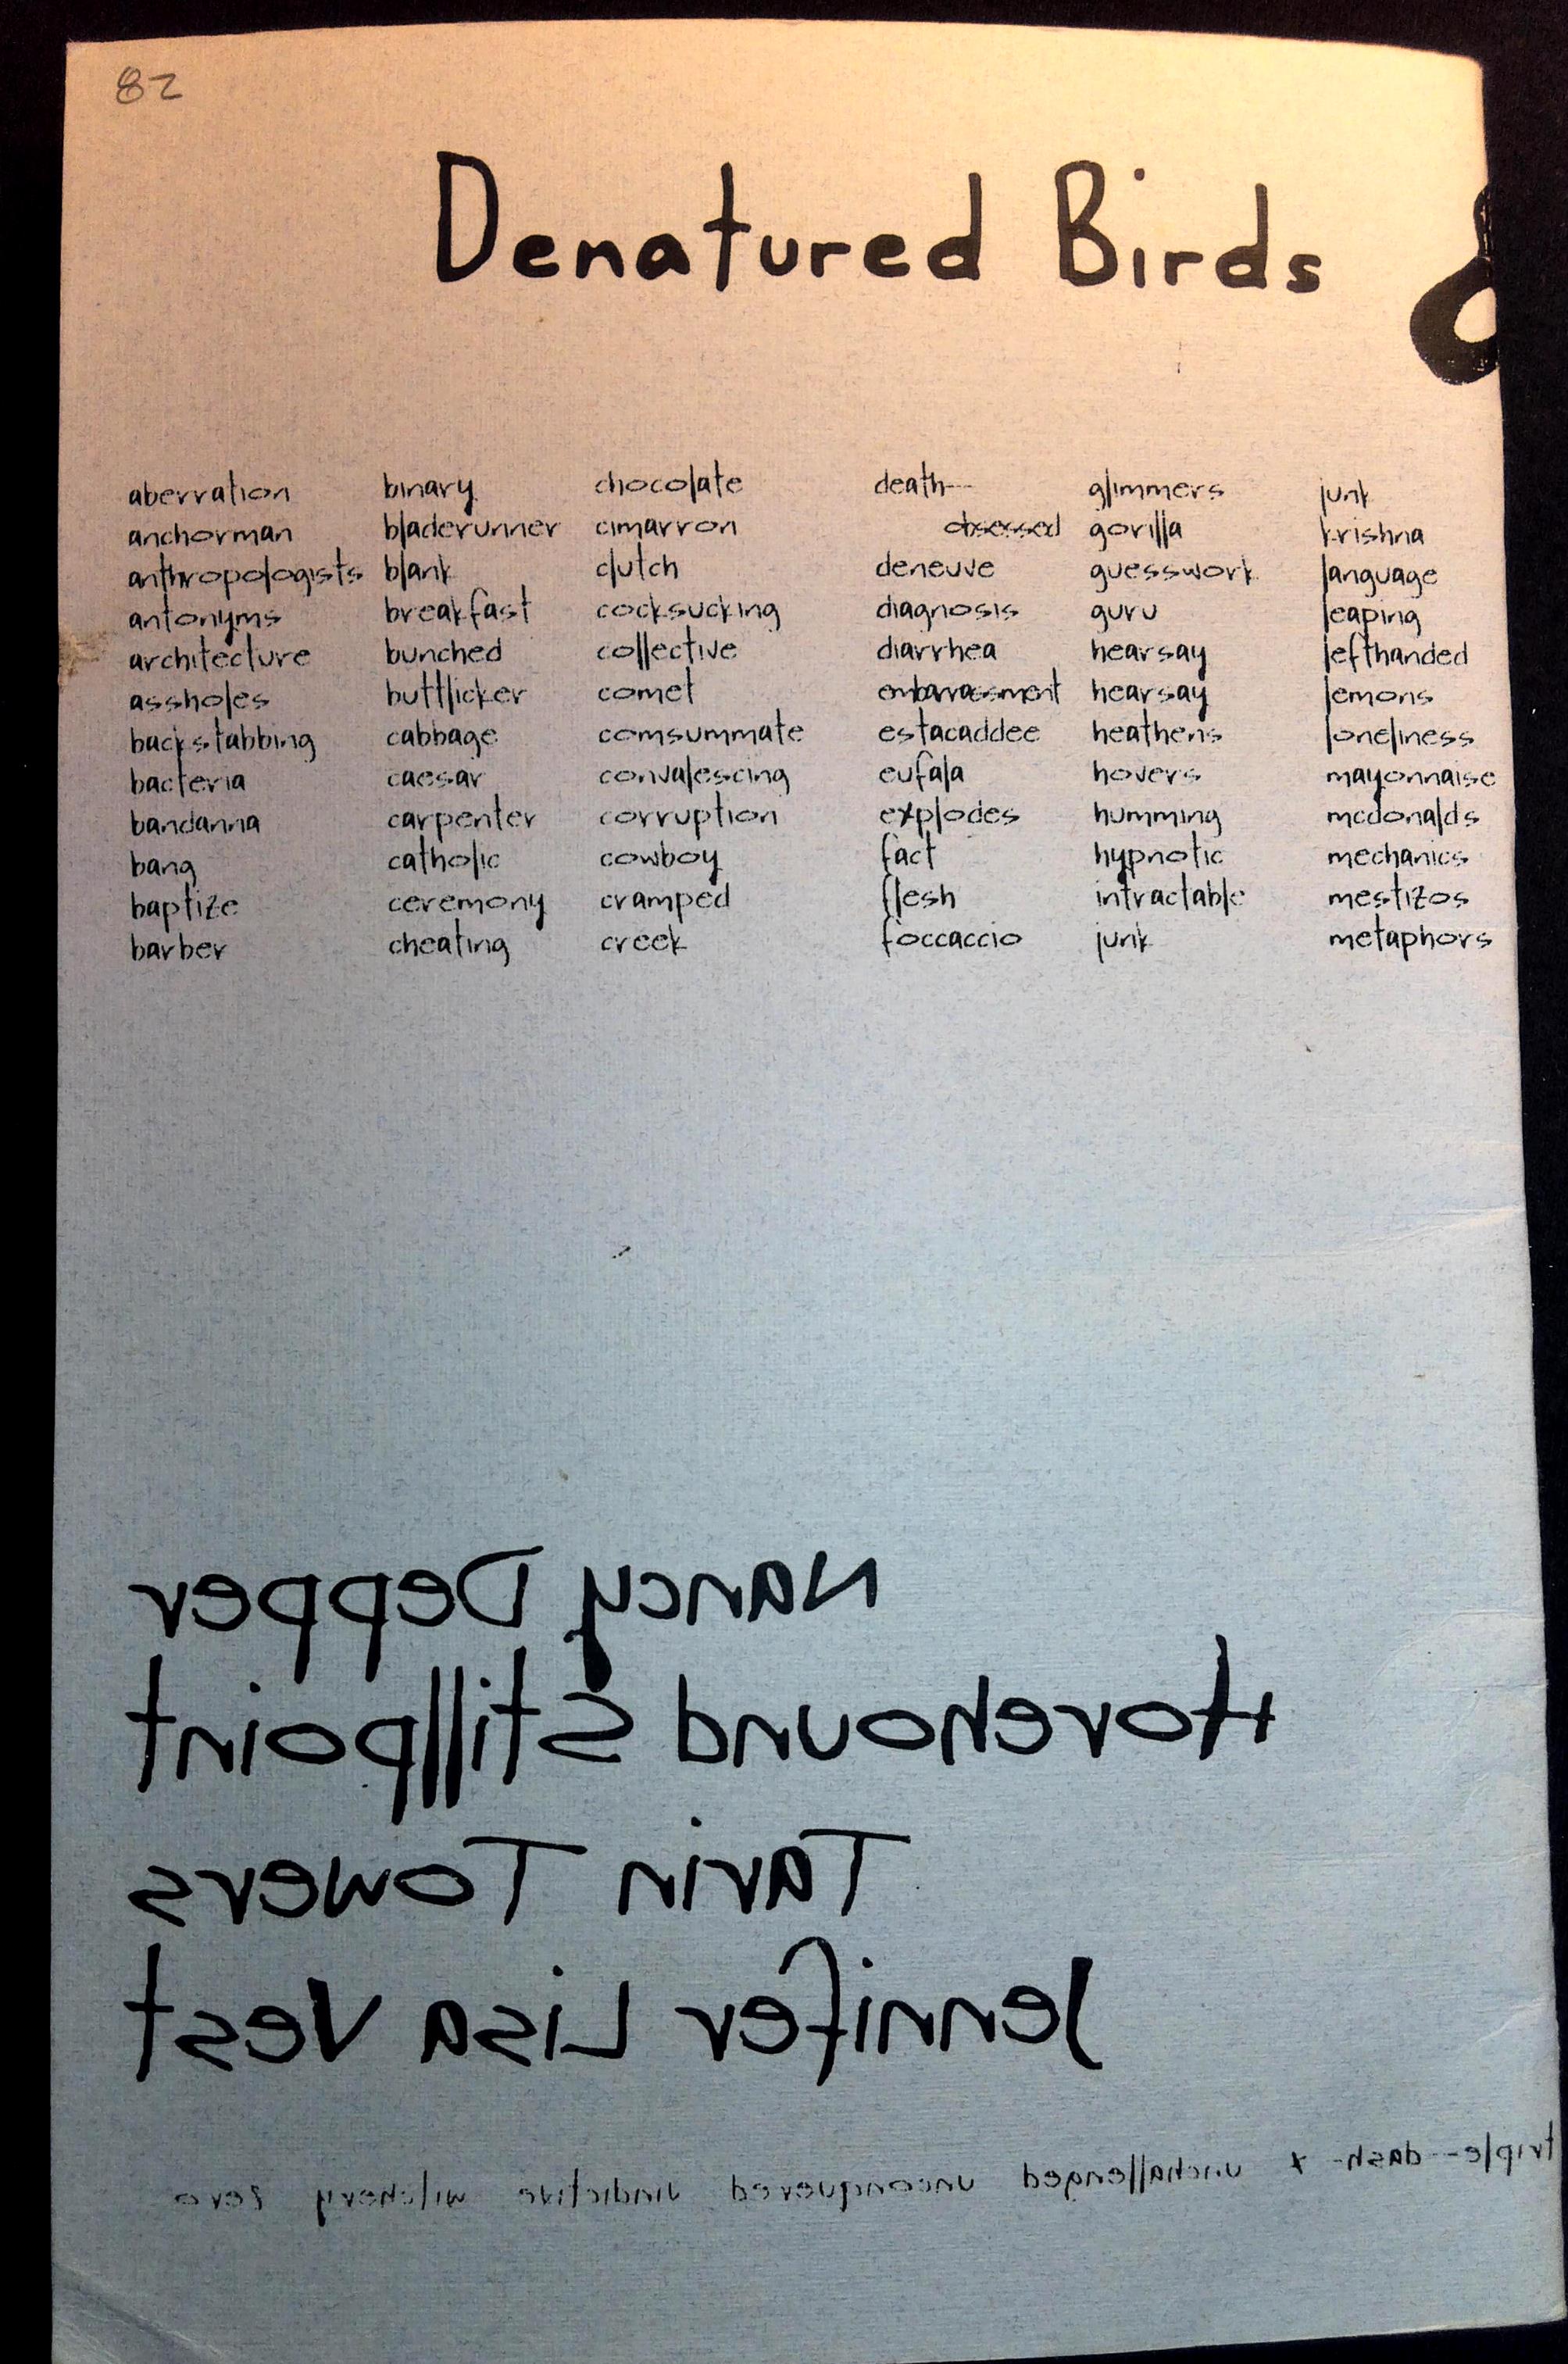 82
Denatured Birds &
aberration binary chocolate death-- glimmers junk
anchorman bladerunner cimarron obsessed gorilla krishna
anthropologists blank clutch deneuve guesswork language
antonyms breakfast cocksucking diagnosis guru leaping
architecture bunched collective diarrhea hearsay lefthanded
assholes buttlicker comet embarrassment hearsay lemons
backstabbing cabbage comsummate estacaddee heathens loneliness
bacteria caesar convalescing eufala hovers mayonnaise
bandanna carpenter corruption explodes humming mcdonalds
bang catholic cowboy fact hypnotic mechanics
baptize ceremony cramped flesh intractable mestizos
barber cheating creek foccaccio junk metaphors
Nancy Depper
Horehound Stillpoint
Tarin Towers
Jennifer Lisa Vest
triple--dash-x unchallenged unconquered vindictive witchery zero